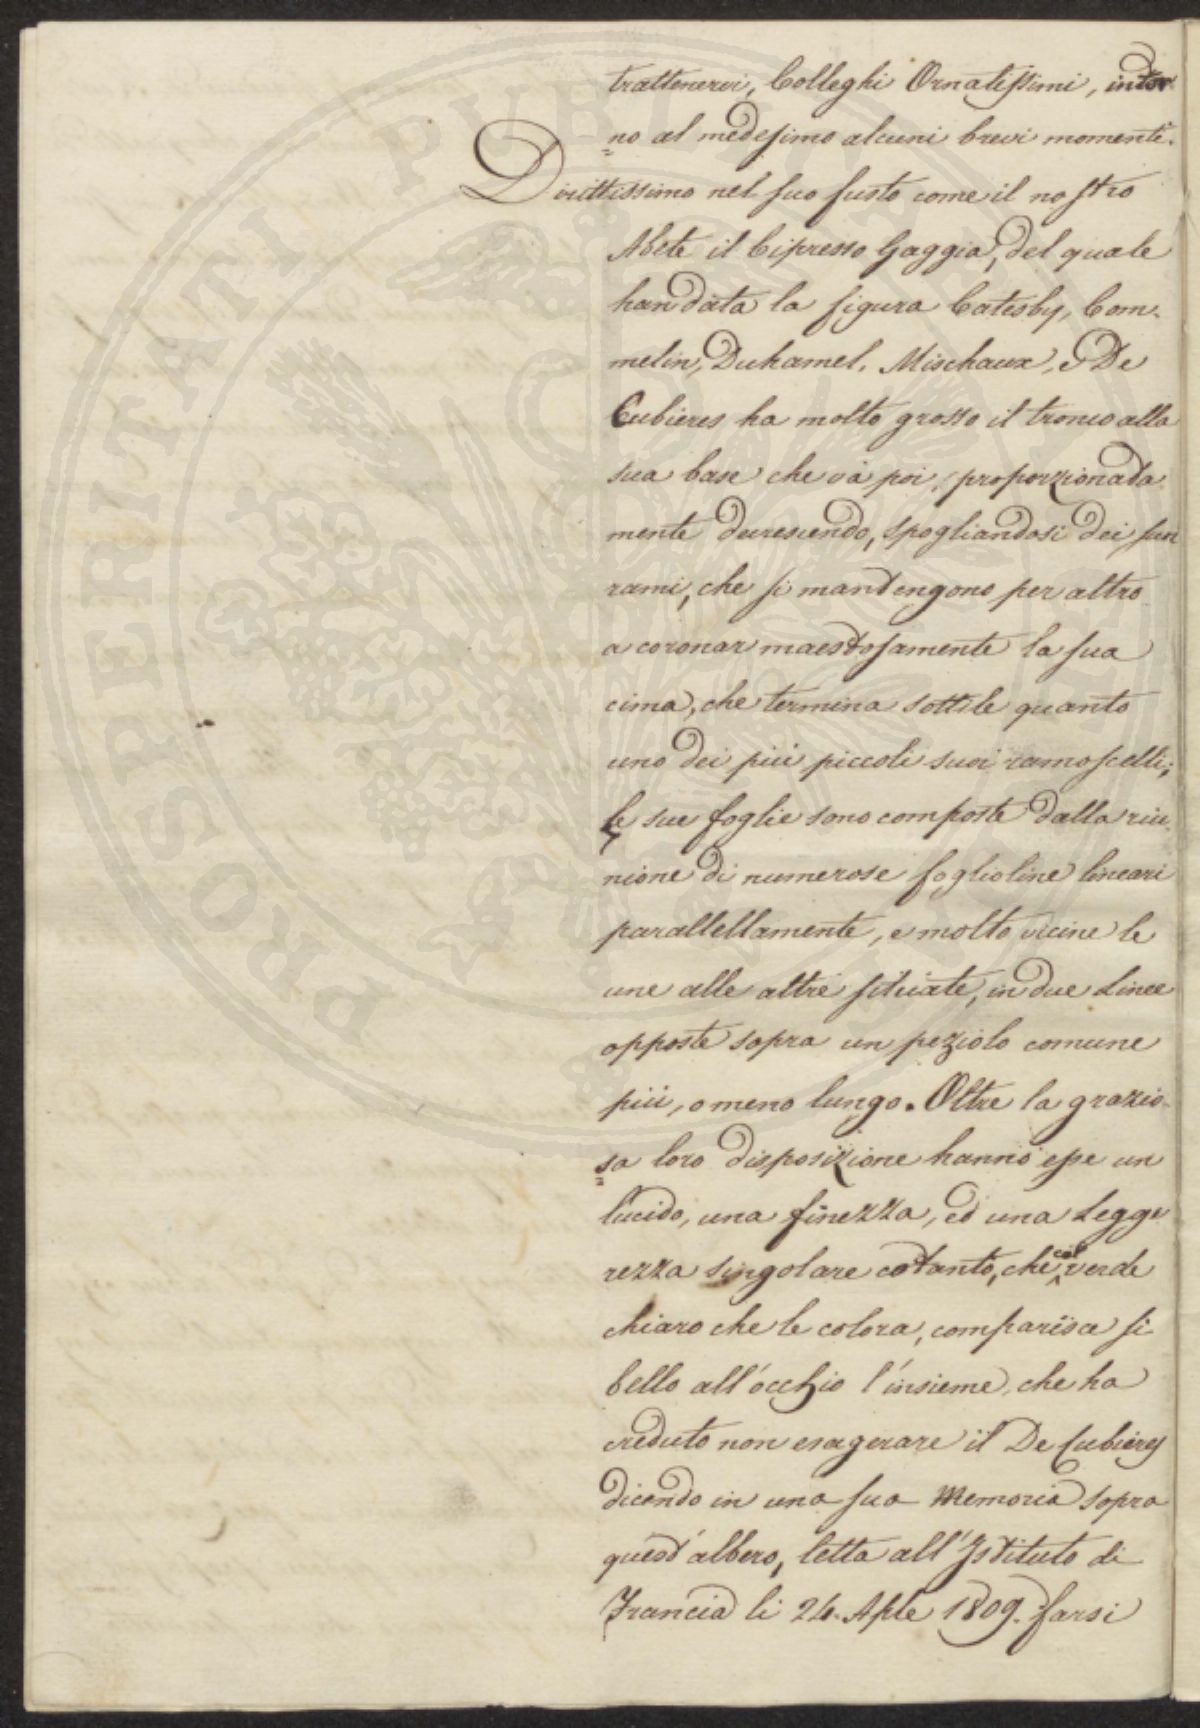 trattenervi, Colleghi Ornatissimi, intor
no al medesimo alcuni brevi momenti.
Dirittissimo nel suo fusto come il nostro
Abete il Cipresso Gaggia, del quale
han data la figura Catesby, Com-
melin, Duhamel, Mischaux, e De
Cubieres ha molto grosso il tronco alla
sua base che và poi proporzionada
mente decrescendo, spogliandosi dei suoi
rami, che si mantengono per altro
a coronar maestosamente la sua
cima, che termina sottile quanto
uno dei più piccoli suoi ramoscelli;
le sue foglie sono composte dalla riu-
nione di numerose foglioline lineari
parallellamente, e molto vicine le
une alle altre situate, in due Linee
opposte sopra un peziolo comune
più, o meno lungo. Oltre la grazio-
sa loro disposizione hanno esse un
lucido, una finezza, ed una Legge
rezza singolare cotanto, che col verde
chiaro che le colora, comparisce sì
bello all'occhio l'insieme, che ha
creduto non esagerare il De Cubieres
dicendo in una sua Memoria sopra
quest'albero, letta all'Istituto di
Francia li 24. Aple 1809. farsi
PROSPERITATI PUBLICAE